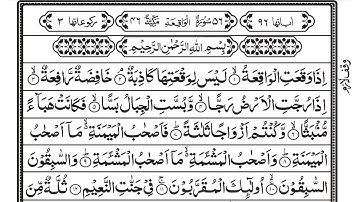 اٰیاتها ٩٦ ٥٦ سُوْرَةُ الْوَاقِعَةِ مَكِّيَّةٌ ٤٦ رکوعاتها ٣
بِسْمِ اللهِ الرَّحْمٰنِ الرَّحِيْمِ
اِذَا وَقَعَتِ الْوَاقِعَةُ ۙ۱ لَيْسَ لِوَقْعَتِهَا كَاذِبَةٌ ۘ۲ خَافِضَةٌ رَّافِعَةٌ ۙ۳
اِذَا رُجَّتِ الْاَرْضُ رَجًّا ۙ۴ وَّبُسَّتِ الْجِبَالُ بَسًّا ۙ۵ فَكَانَتْ هَبَآءً
مُّنْۢبَثًّا ۙ۶ وَّكُنْتُمْ اَزْوَاجًا ثَلٰثَةً ؕ۷ فَاَصْحٰبُ الْمَيْمَنَةِ ۙ۬ مَاۤ اَصْحٰبُ
الْمَيْمَنَةِ ؕ۸ وَاَصْحٰبُ الْمَشْـَٔمَةِ ۙ۬ مَاۤ اَصْحٰبُ الْمَشْـَٔمَةِ ؕ۹ وَالسّٰبِقُوْنَ
السّٰبِقُوْنَ ۚۙ۱۰ اُولٰٓئِكَ الْمُقَرَّبُوْنَ ۚ۱۱ فِيْ جَنّٰتِ النَّعِيْمِ ۱۲ ثُلَّةٌ مِّنَ